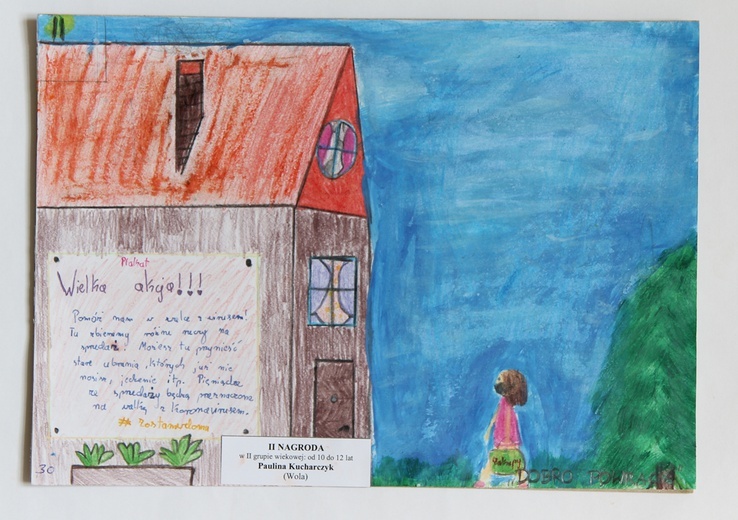 Plakat
Wielka akcja!!!
Pomóż nam w walce z wirusem!
Tu zbieramy różne rzeczy na
sprzedaż. Możesz tu przynieść
stare ubrania, których już nie
nosisz, jedzenie itp. Pieniądze
ze sprzedaży będą przeznaczone
na walkę z koronawirusem.
# zostańwdomu
30
II NAGRODA
w II grupie wiekowej: od 10 do 12 lat
Paulina Kucharczyk
(Wola)
DOBRO